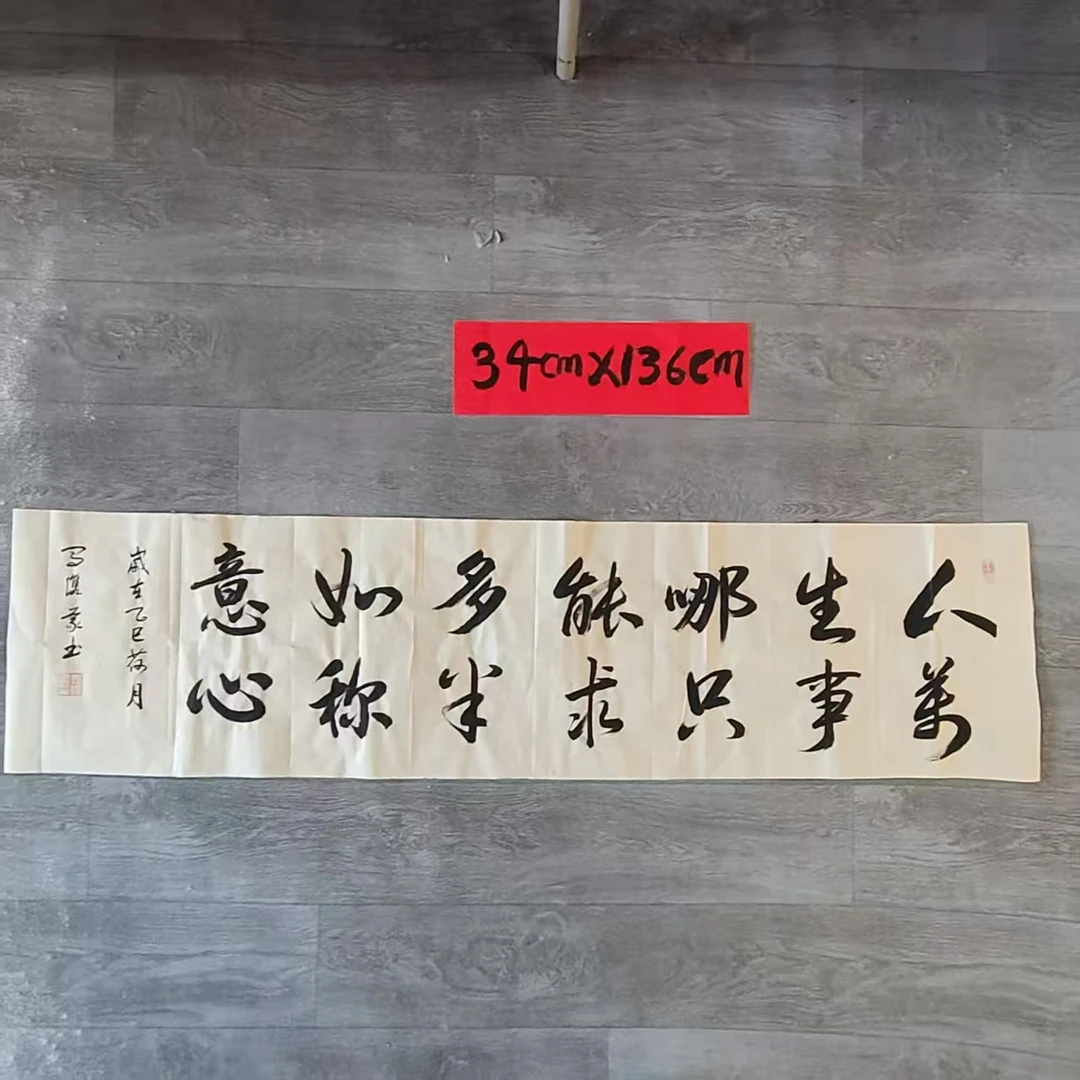 34cm×136cm
人生哪能多如意
萬事只求半称心
歲在乙巳荷月
书